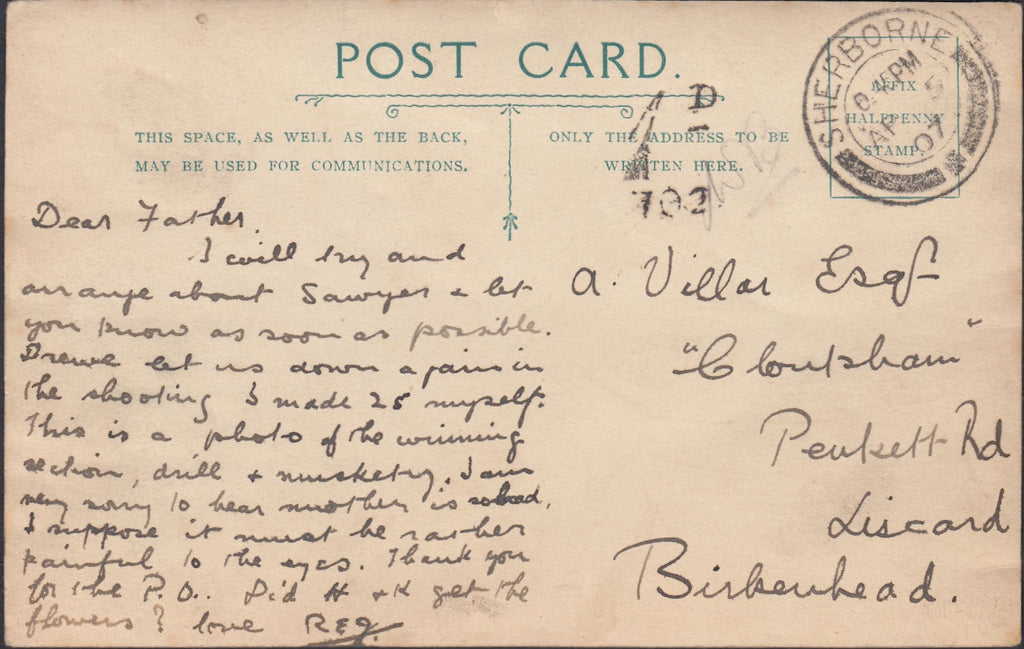 POST CARD.
THIS SPACE, AS WELL AS THE BACK,
MAY BE USED FOR COMMUNICATIONS.
ONLY THE ADDRESS TO BE
WRITTEN HERE.
AFFIX
HALFPENNY
STAMP.
SHERBORNE
PM
AP
07
1 D
702
Dear Father,
I will try and
arrange about Sawyer & let
you know as soon as possible.
Drewe let us down again in
the shooting I made 25 myself.
This is a photo of the winning
section, drill & musketry. I am
very sorry to hear mother is so bad,
I suppose it must be rather
painful to the eyes. Thank you
for the P.O.. Did H & K get the
flowers? love Reg.
A. Villar Esqr
"Cloutsham"
Penkett Rd
Liscard
Birkenhead.